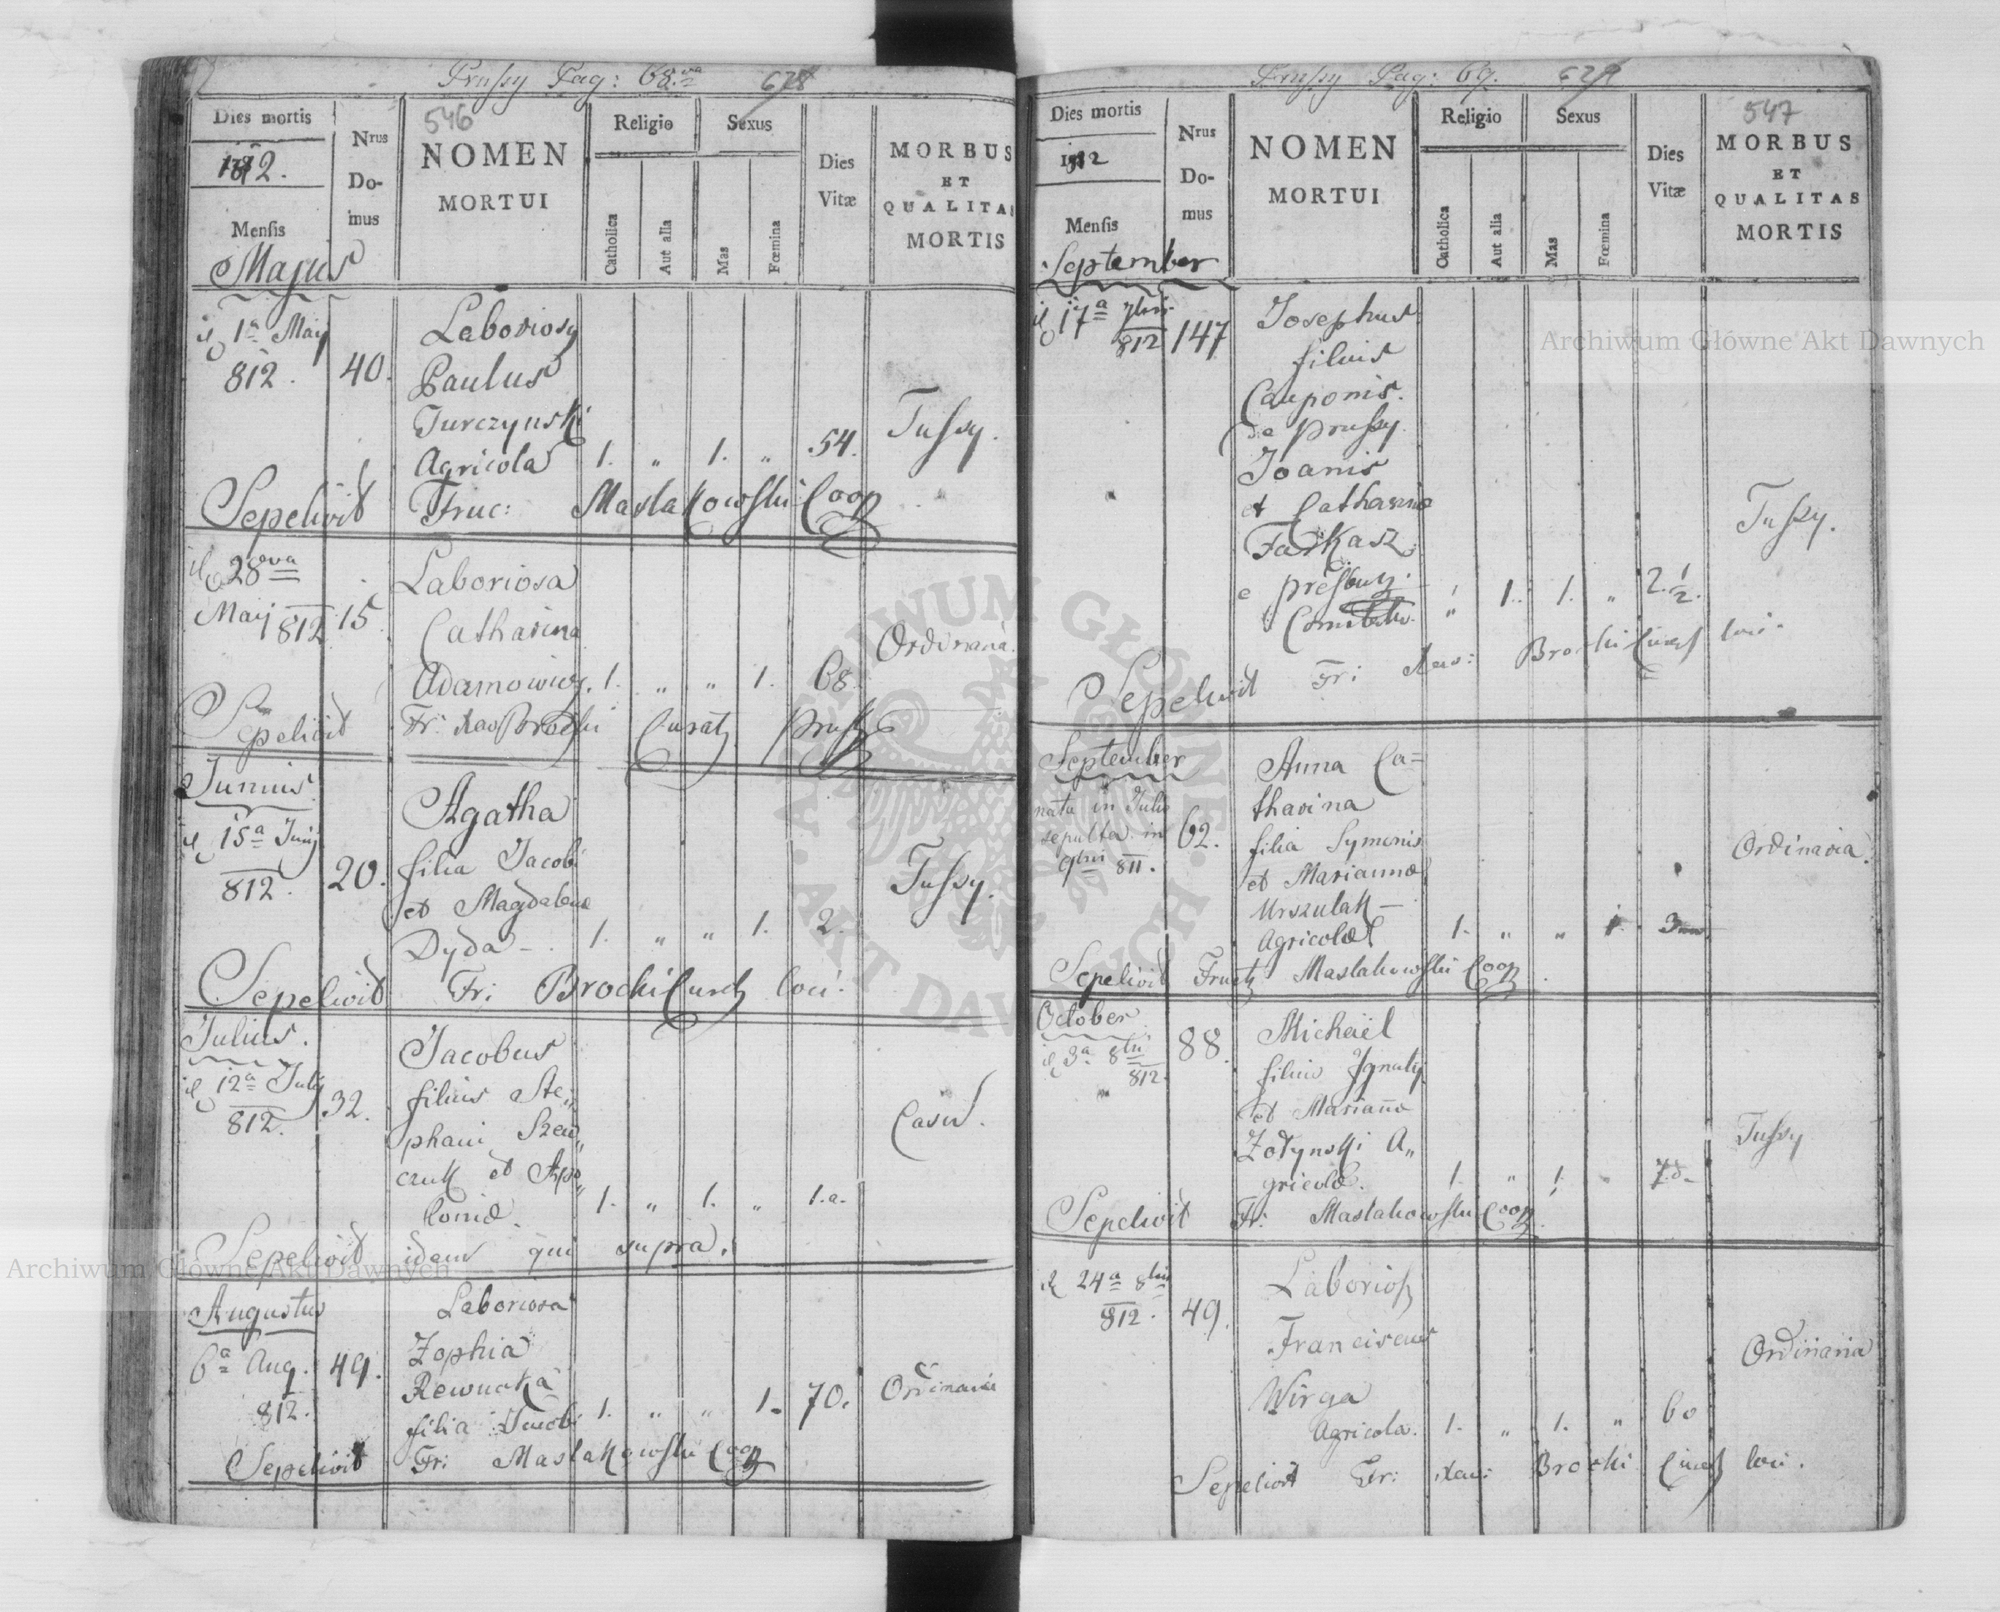 Prussy Pag: 68.va 678
Dies mortis
1812.
Mensis
Majus
Nrus
Do-
mus
546
NOMEN
MORTUI
Religio
Catholica
Aut alia
Sexus
Mas
Fœmina
Dies
Vitæ
MORBUS
ET
QUALITAS
MORTIS
1a May
812. 40.
Laboriosy
Paulus
Turczynski
Agricola 1. „ 1. „ 54. Tussy.
Sepelivit Fruc: Maslakowski Coop
28va
Maij 812 15.
Laboriosa
Catharina
Adamowicz. 1. „ „ 1. 68. Ordinaria.
Sepelivit Fr: Xav Brocki Curatz Prussy
Junius
15a Junj
812. 20.
Agatha
filia Jacobi
et Magdalena
Dyda - 1. „ „ 1. 2. Tussy.
Sepelivit Fr: Brocki Curatz loci.
Julius.
12a July
812. 32.
Jacobus
filius Ste„
phani Szew„
czuk et Apo„
loniæ. 1. „ 1. „ 1.a. Casu.
Sepelivit idem qui supra.
Augustus
6a Aug. 49.
812.
Laboriosa
Zophia
Rewucka
filia Jacobi 1. „ „ 1. 70. Ordinaria
Sepelivit Fr: Maslakowski Coop
Prussy Pag: 69. 679
Dies mortis
1812
Mensis
September
Nrus
Do-
mus
NOMEN
MORTUI
Religio
Catholica
Aut alia
Sexus
Mas
Fœmina
Dies
Vitæ
547
MORBUS
ET
QUALITAS
MORTIS
17a 7bris
812 147
Josephus
filius
Cauponis.
de Prussy.
Joanis
et Catharinæ
Farkasz.
e Presburg.
Comitatu. „ 1. 1. „ 2.1/2. Tussy.
Sepelivit Fr: Xav: Brocki Curatz loci.
September
nata in Julio
sepulta in
9bri 811. 62.
Anna Ca=
tharina
filia Symonis
et Mariannæ
Urszulak —
Agricolæ 1. „ „ 1. 3 Ordinaria.
Sepelivit Fructz Maslakowski Coop
October
3a 8bri
812. 88.
Michaël
filius Jgnaty
et Marianæ
Zołynski A„
gricolæ. 1. „ 1. „ 7.d. Tussy
Sepelivit Fr: Maslakowski Coop.
24a 8bris
812. 49.
Laborios
Franciscus
Wirga
Agricola. 1. „ 1. „ 60 Ordinaria
Sepelivit Fr: Xav: Brocki Curatz loci.
Archiwum Główne Akt Dawnych
Archiwum Główne Akt Dawnych
ARCHIWUM GŁÓWNE AKT DAWNYCH